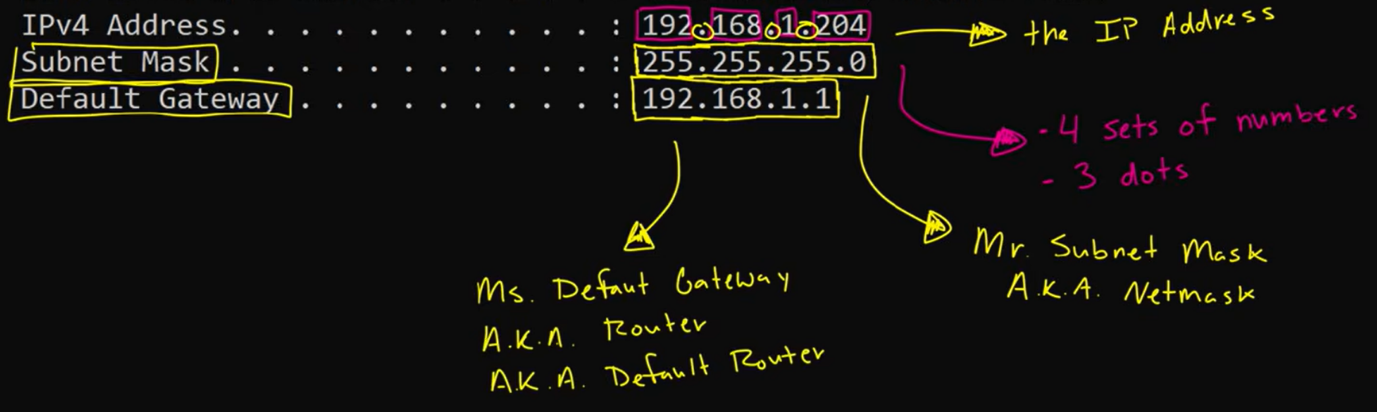 IPv4 Address. . . . . . . . . . . : 192.168.1.204
Subnet Mask . . . . . . . . . . . : 255.255.255.0
Default Gateway . . . . . . . . . : 192.168.1.1
the IP Address
- 4 sets of numbers
- 3 dots
Mr. Subnet Mask
A.K.A. Netmask
Ms. Defaut Gateway
A.K.A. Router
A.K.A. Default Router